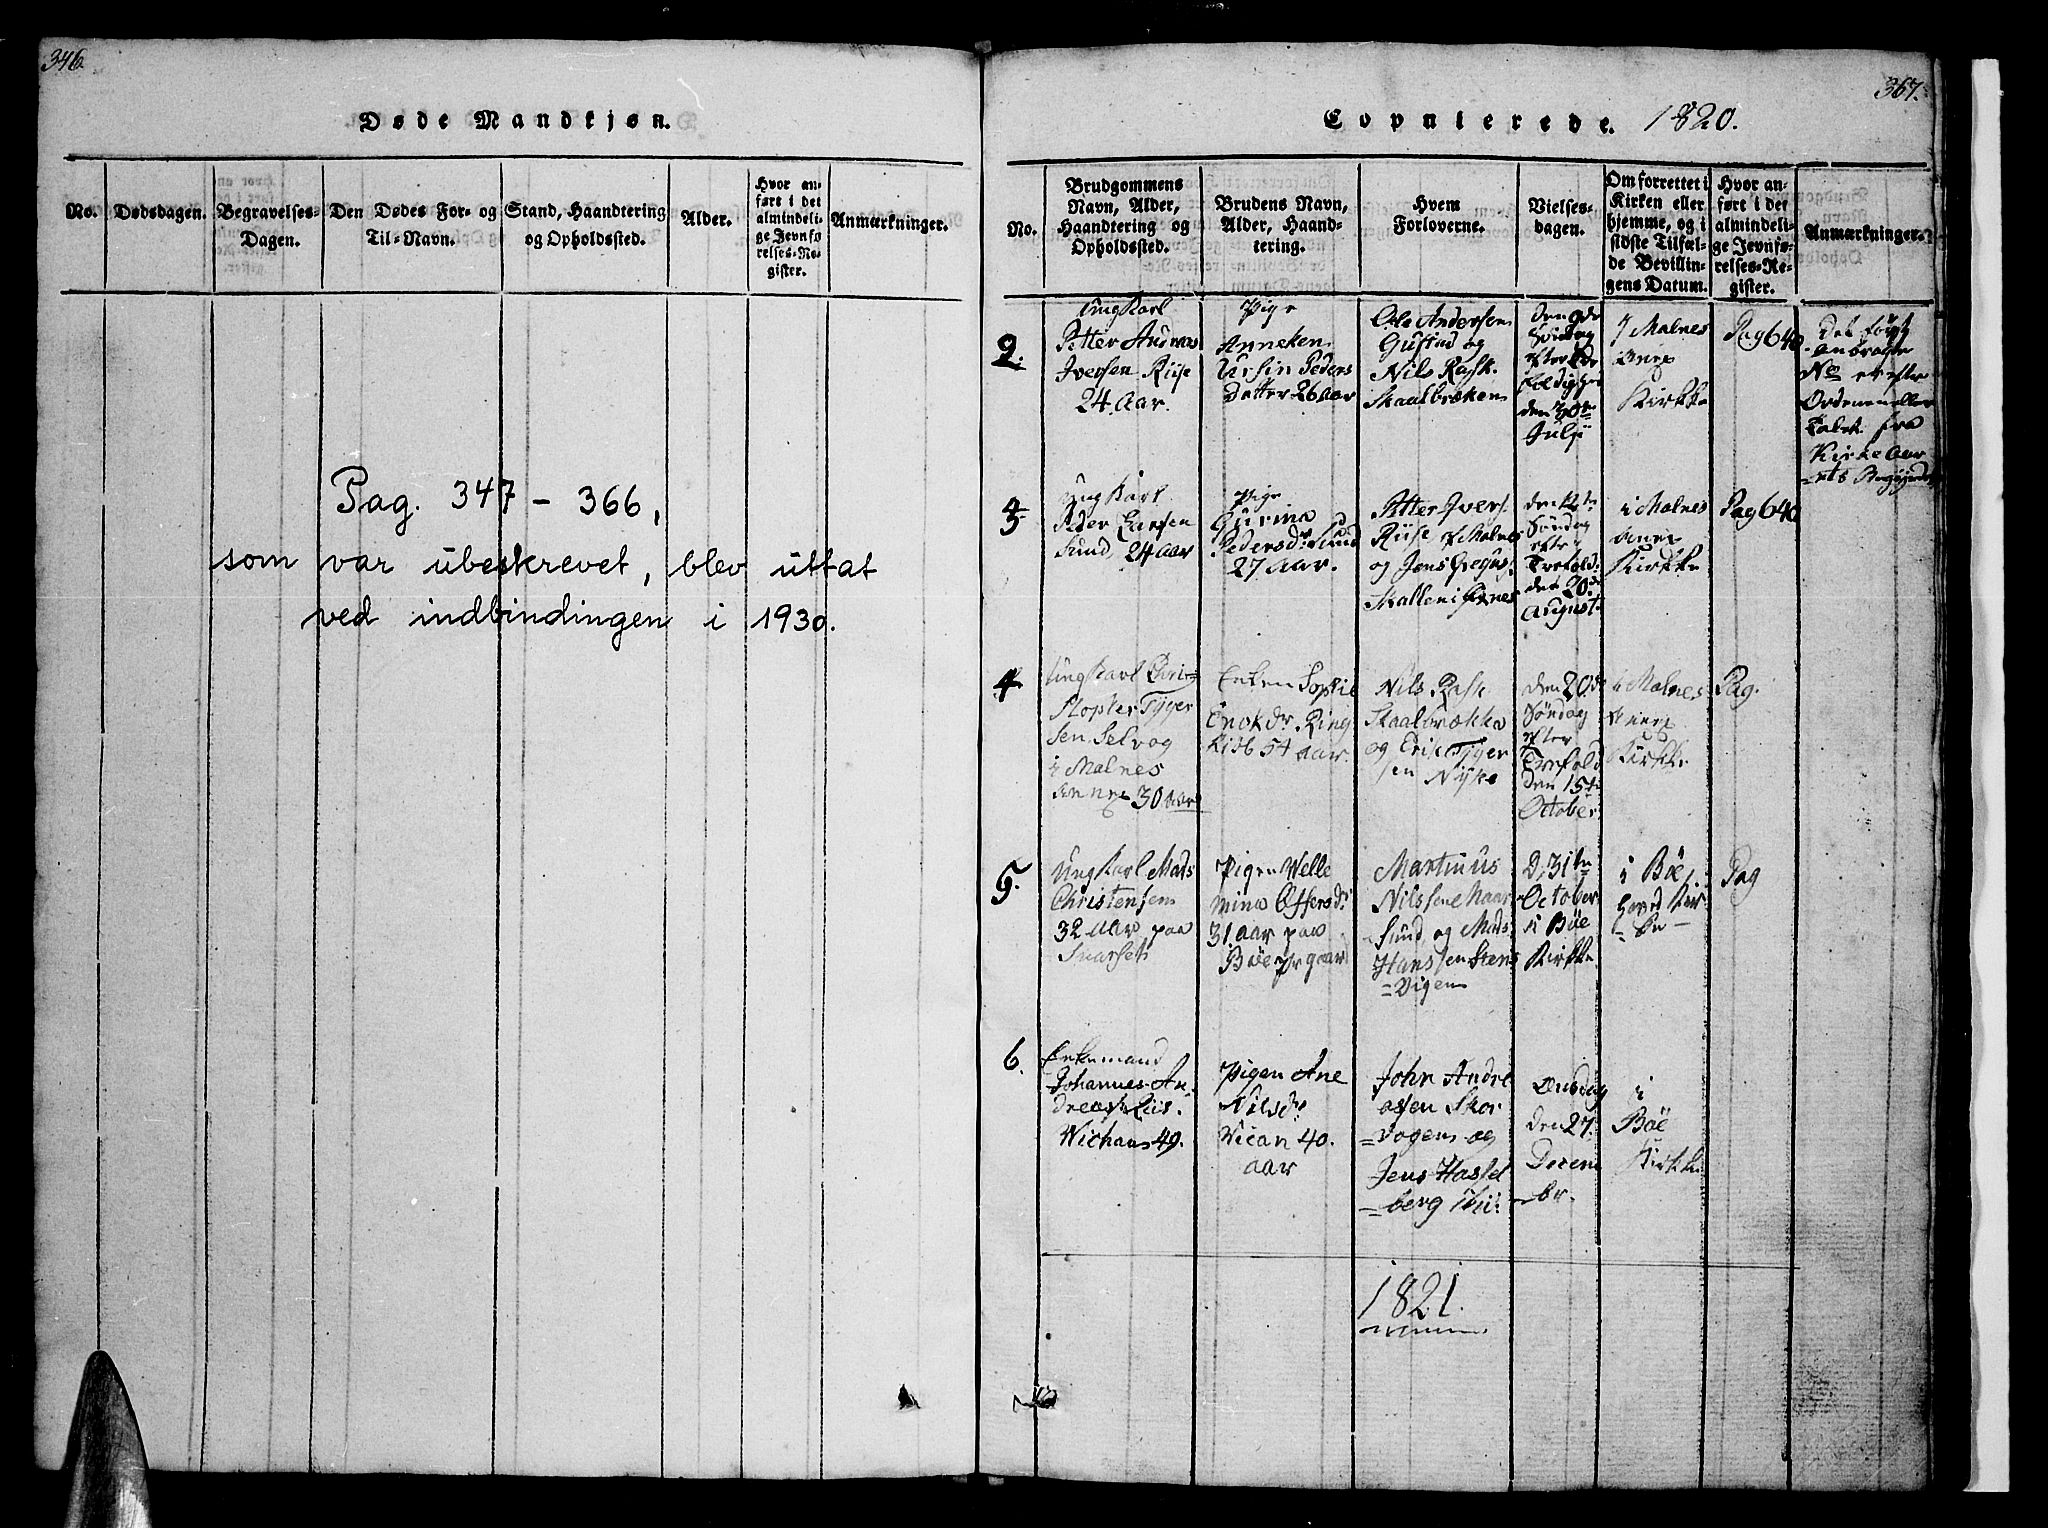 346.
Døde Mandkjøn.
No.
Dødsdagen.
Begravelses-
Dagen.
Den Dødes For- og
Til-Navn.
Stand, Haandtering
og Opholdssted.
Alder.
Hvor an-
ført i det
almindeli-
ge Jevnfø-
relses-Re-
gister.
Anmærkninger.
Pag. 347 - 366,
som var ubeskrevet, blev uttat
ved indbindingen i 1930.
367.
Copulerede. 1820.
No.
Brudgommens
Navn, Alder,
Haandtering og
Opholdssted.
Brudens Navn,
Alder, Haand-
tering.
Hvem
Forloverne.
Vielses-
dagen.
Om forrettet i
Kirken eller
hjemme, og i
sidste Tilfæl-
de Bevillin-
gens Datum.
Hvor an-
ført i det
almindeli-
ge Jevnfø-
relses-Re-
gister.
Anmærkninger.
2.
Ung Karl
Petter Andreas
Iversen Riise
24 Aar.
Pige
Anneken
Ursin Peders
Datter 26 Aar
Ole Andersen
Gustad og
Nils Rask
Skaalbrekken
den 9de
Søndag
efter
den 30te
Julii
i Malnes
Kirkke
Pag 640
Det
No
fra
Kirke Aar
3
Ung Karl
Peder Larsen
Sund, 24 Aar
Pige
Gurina
Pedersdr Sund
27 Aar.
Petter Ivers.
Riise i Malnes
og Jens
den 12te
Søndag
efter
Trefold:
den 20de
August.
i Malnes
Kirkke
Pag 640
4
Ung Karl Chri
stopher Tyger
sen Selvog
i Malnes
Annex 30 Aar
Enken Sophie
Enokdr Ring
54 Aar.
Nils Rask
Skaalbrække
og Erik Tyger
sen Nyke
den 20de
Søndag
efter
Trefold
den 15te
October
i Malnes
Kirkke
Pag.
5.
Ung Karl Mads
Christensen
32 Aar paa
Svarset
Pigen Welle
mina Offersdr
31 aar paa
Bøe
Martinus
Nilssen
Sund og Mads
Hanssen Steens
=Vigen
D. 31te
October
i Bøe
Kirkke.
i Bøe
Hoved Kir
ke
Pag
6.
Enkemand
Johannes An
dreas
49.
Pigen Ane
Nilsdr
40.
aar
John Andre
asen Skor
=vogen og
Jens Hassel
=berg
Onsdag
den 27.
Decem
=br.
i
Bøe
Kirkke
1821.